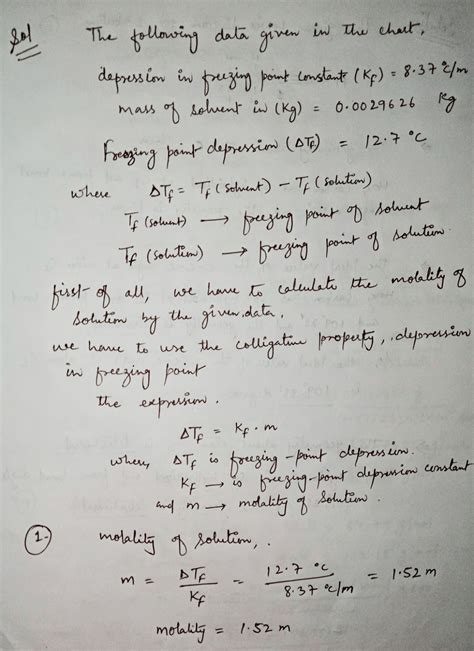 Sol
The following data given in the chart,
depression in freezing point constant (Kf) = 8.37 °c/m
mass of solvent in (Kg) = 0.0029626 Kg
Freezing point depression (ΔTf) = 12.7 °C
where ΔTf = Tf (solvent) - Tf (solution)
Tf (solvent) → freezing point of solvent
Tf (solution) → freezing point of solution.
first of all, we have to calculate the molality of
solution by the given data.
we have to use the colligative property, depression
in freezing point
the expression.
ΔTf = Kf . m
where, ΔTf is freezing-point depression.
Kf → is freezing-point depression constant
and m → molality of solution.
1. molality of solution, .
m = ΔTf / Kf = 12.7 °c / 8.37 °c/m = 1.52 m
molality = 1.52 m